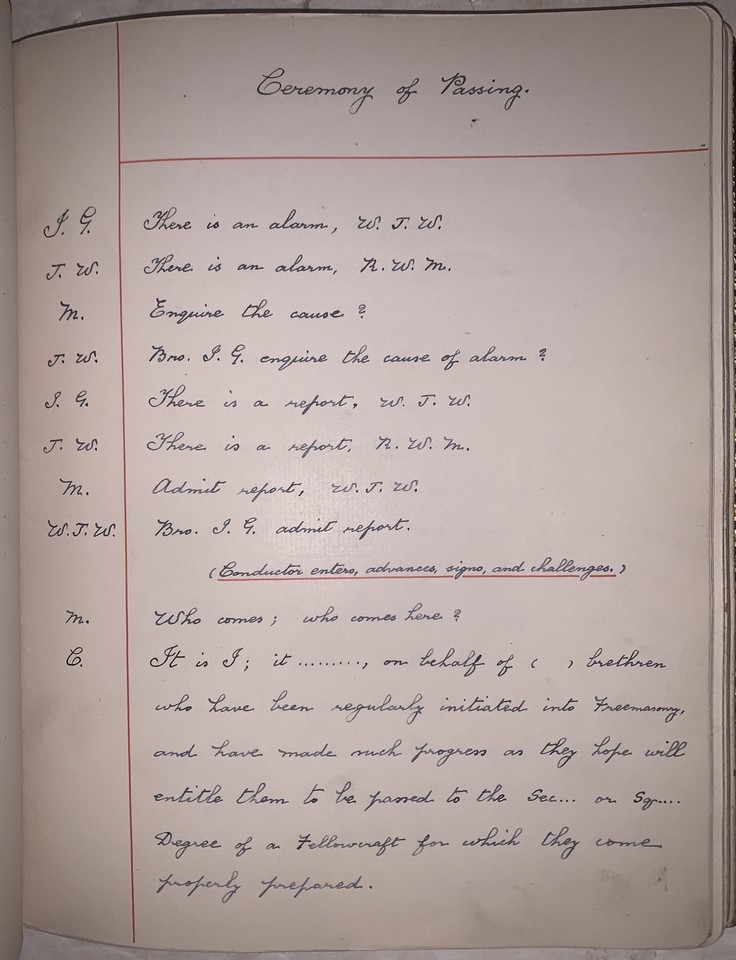 Ceremony of Passing.
I. G. There is an alarm, W. J. W.
J. W. There is an alarm, R. W. M.
M. Enquire the cause?
J. W. Bro. I. G. enquire the cause of alarm?
I. G. There is a report, W. J. W.
J. W. There is a report, R. W. M.
M. Admit report, W. J. W.
W. J. W. Bro. I. G. admit report.
(Conductor enters, advances, signs, and challenges.)
M. Who comes; who comes here?
C. It is I; it ........., on behalf of ( ) brethren
who have been regularly initiated into Freemasonry,
and have made such progress as they hope will
entitle them to be passed to the Sec... or Sq....
Degree of a Fellowcraft for which they come
properly prepared.